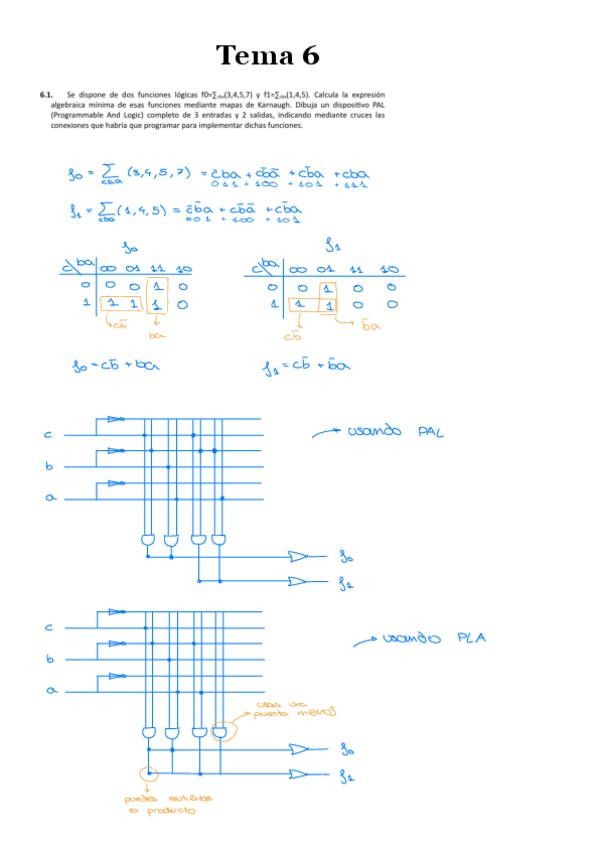 Tema 6
6.1. Se dispone de dos funciones lógicas f0=∑cba(3,4,5,7) y f1=∑cba(1,4,5). Calcula la expresión
algebraica mínima de esas funciones mediante mapas de Karnaugh. Dibuja un dispositivo PAL
(Programmable And Logic) completo de 3 entradas y 2 salidas, indicando mediante cruces las
conexiones que habría que programar para implementar dichas funciones.
f₀ = ∑cba (3,4,5,7) = c̄ba + cb̄ā + cb̄a + cba
011 + 100 + 101 + 111
f₁ = ∑cba (1,4,5) = c̄b̄a + cb̄ā + cb̄a
001 + 100 + 101
f₀ f₁
c\ba 00 01 11 10 c\ba 00 01 11 10
0 0 0 1 0 0 0 1 0 0
1 1 1 1 0 1 1 1 0 0
cb̄ ba cb̄ b̄a
f₀ = cb̄ + ba f₁ = cb̄ + b̄a
c
b
a
usando PAL
f₀
f₁
c
b
a
usando PLA
usas una
puerta menos
f₀
f₁
puedes
el producto